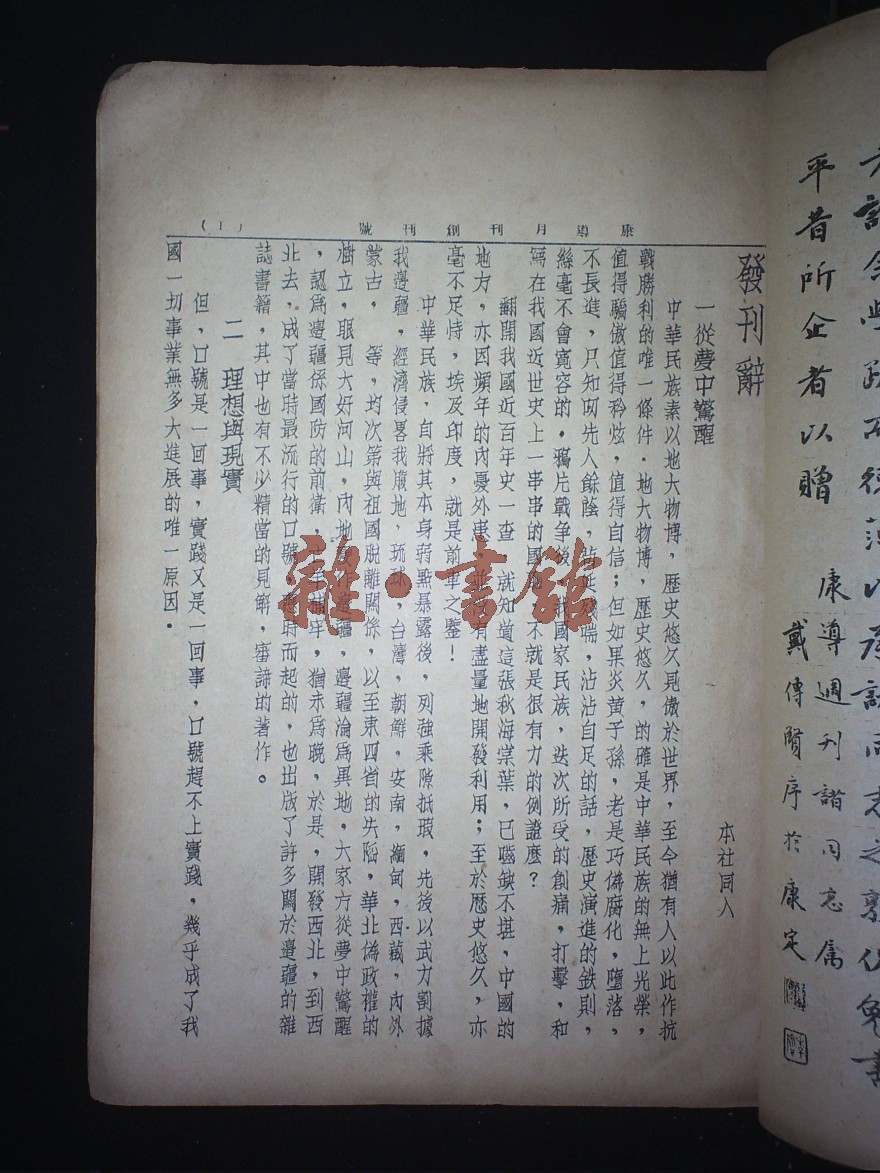 康導月刊創刊號
(1)
發刊辭
本社同人
一從夢中驚醒
中華民族素以地大物博，歷史悠久見傲於世界，至今猶有人以此作抗
戰勝利的唯一條件．地大物博，歷史悠久，的確是中華民族的無上光榮，
值得驕傲值得矜炫，值得自信；但如果炎黃子孫，老是巧偽腐化，墮落，
不長進，只知仰先人餘蔭，殘喘，沾沾自足的話，歷史演進的鉄則，
絲毫不會寬容的．鴉片戰争後，我國家民族，迭次所受的創痛，打擊，和
寫在我國近世史上一串串的國 不就是很有力的例證麼？
翻開我國近百年史一查，就知道這張秋海棠葉，已嚙缺不堪，中國的
地方，亦因頻年的內憂外患，並沒有盡量地開發利用；至於歷史悠久，亦
毫不足恃，埃及印度，就是前車之鑒！
中華民族，自將其本身弱點暴露後，列強乘隙抵瑕，先後以武力割據
我邊疆，經濟侵畧我腹地，琉球，台灣，朝鮮，安南，緬甸，西藏，內外
蒙古，等，均次第與祖國脫離關係，以至東四省的失陷，華北偽政權的
樹立，眼見大好河山，內地變作邊疆，邊疆淪爲異地，大家方從夢中驚醒
，認爲邊疆係國防的前衛，亡羊補牢，猶未爲晚，於是，開發西北，到西
北去，成了當時最流行的口號，應時而起的，也出版了許多關於邊疆的雜
誌書籍，其中也有不少精當的見解，審諦的著作。
二 理想與現實
但，口號是一回事，實踐又是一回事，口號趕不上實踐，幾乎成了我
國一切事業無多大進展的唯一原因．
平昔所企者以贈
康導週刊諸同志属
戴傳賢序於康定
雜·書館